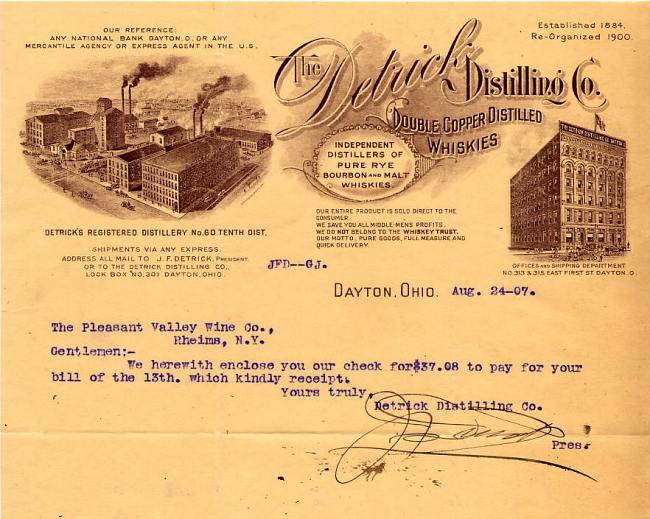 OUR REFERENCE:
ANY NATIONAL BANK DAYTON, O. OR ANY
MERCANTILE AGENCY OR EXPRESS AGENT IN THE U.S.
Established 1884.
Re-Organized 1900.
The Detrick Distilling Co.
DOUBLE COPPER DISTILLED
WHISKIES
INDEPENDENT
DISTILLERS OF
PURE RYE
BOURBON AND MALT
WHISKIES
THE DETRICK DISTILLING CO.
OUR ENTIRE PRODUCT IS SOLD DIRECT TO THE
CONSUMER.
WE SAVE YOU ALL MIDDLE-MENS PROFITS.
WE DO NOT BELONG TO THE WHISKEY TRUST.
OUR MOTTO, PURE GOODS, FULL MEASURE AND
QUICK DELIVERY.
DETRICK'S REGISTERED DISTILLERY No. 60 TENTH DIST.
SHIPMENTS VIA ANY EXPRESS.
ADDRESS ALL MAIL TO J. F. DETRICK, PRESIDENT.
OR TO THE DETRICK DISTILLING CO.,
LOCK BOX NO. 301 DAYTON, OHIO.
OFFICES AND SHIPPING DEPARTMENT
NO. 313 & 315 EAST FIRST ST. DAYTON. O.
JFD--GJ.
DAYTON, OHIO. Aug. 24-07.
The Pleasant Valley Wine Co.,
Rheims, N.Y.
Gentlemen:-
We herewith enclose you our check for$37.08 to pay for your
bill of the 13th. which kindly receipt.
Yours truly,
Detrick Distilling Co.
Pres.